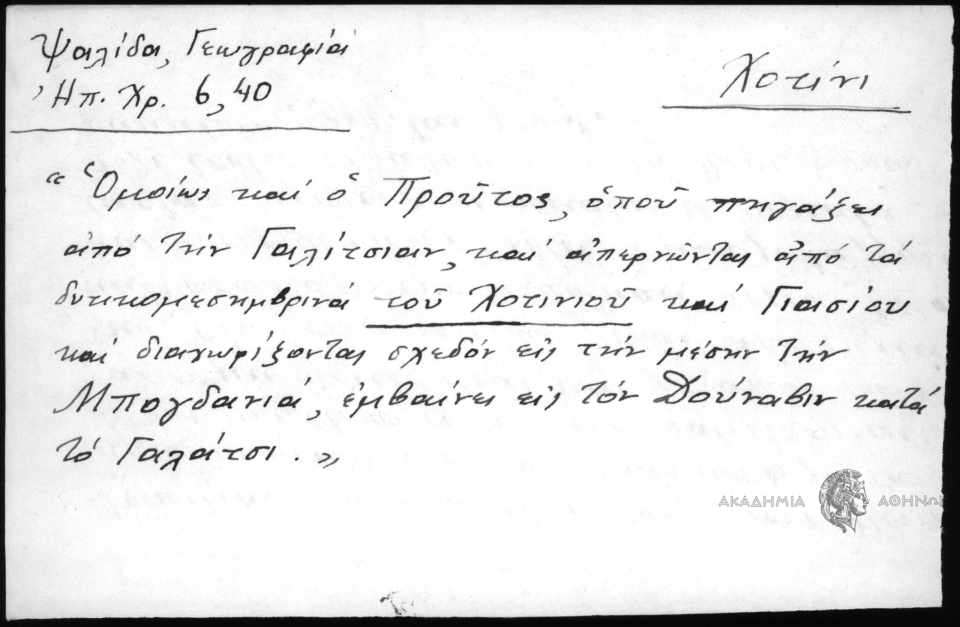 Ψαλίδα, Γεωγραφία
Ἠπ. Χρ. 6, 40
Χοτίνι
“ Ὁμοίως καί ὁ Προῦτος, ὁποῦ πηγάζει
ἀπό τήν Γαλίτσιαν, καί ἀπερνῶντας ἀπό τά
δυτικομεσημβρινά τοῦ Χοτινιοῦ καί Γιασίου
καί διαχωρίζοντας σχεδόν εἰς τήν μέσην τήν
Μπογδανιά, ἐμβαίνει εἰς τόν Δούναβιν κατά
τό Γαλάτσι. „
ΑΚΑΔΗΜΙΑ ΑΘΗΝΩΝ